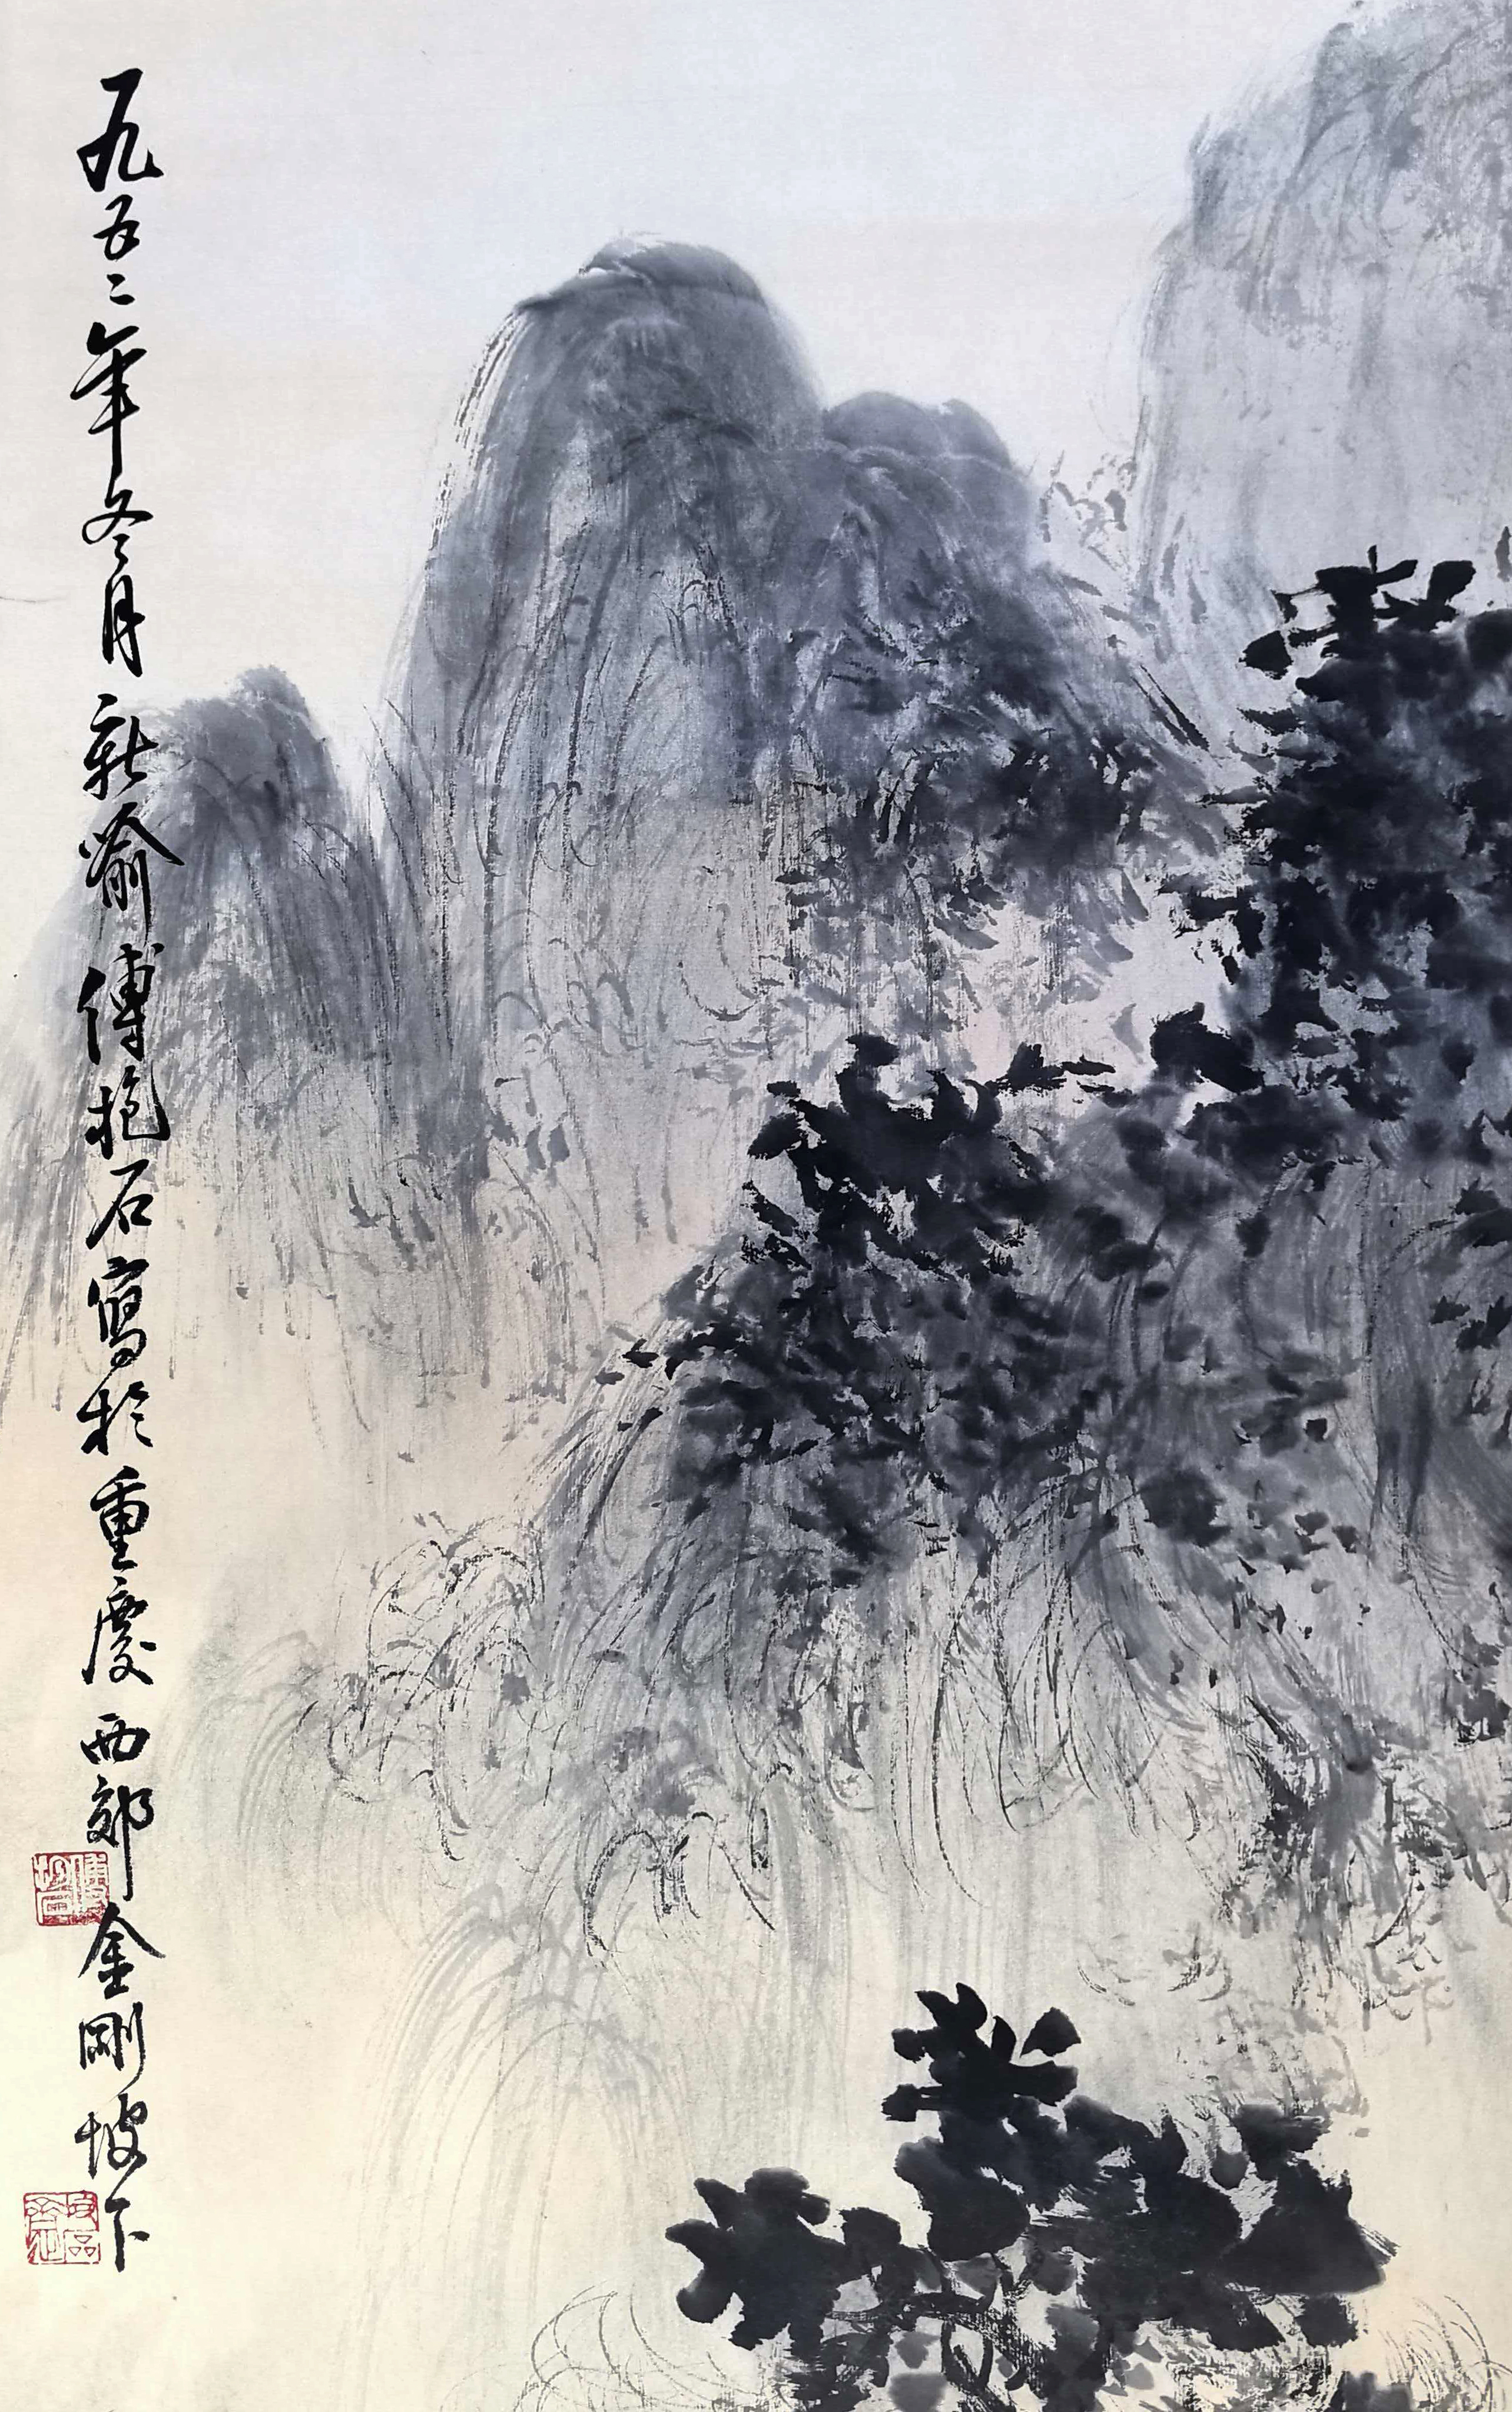 一九五二年冬月新喻傅抱石寫於重慶西郊金剛坡下
傅抱石